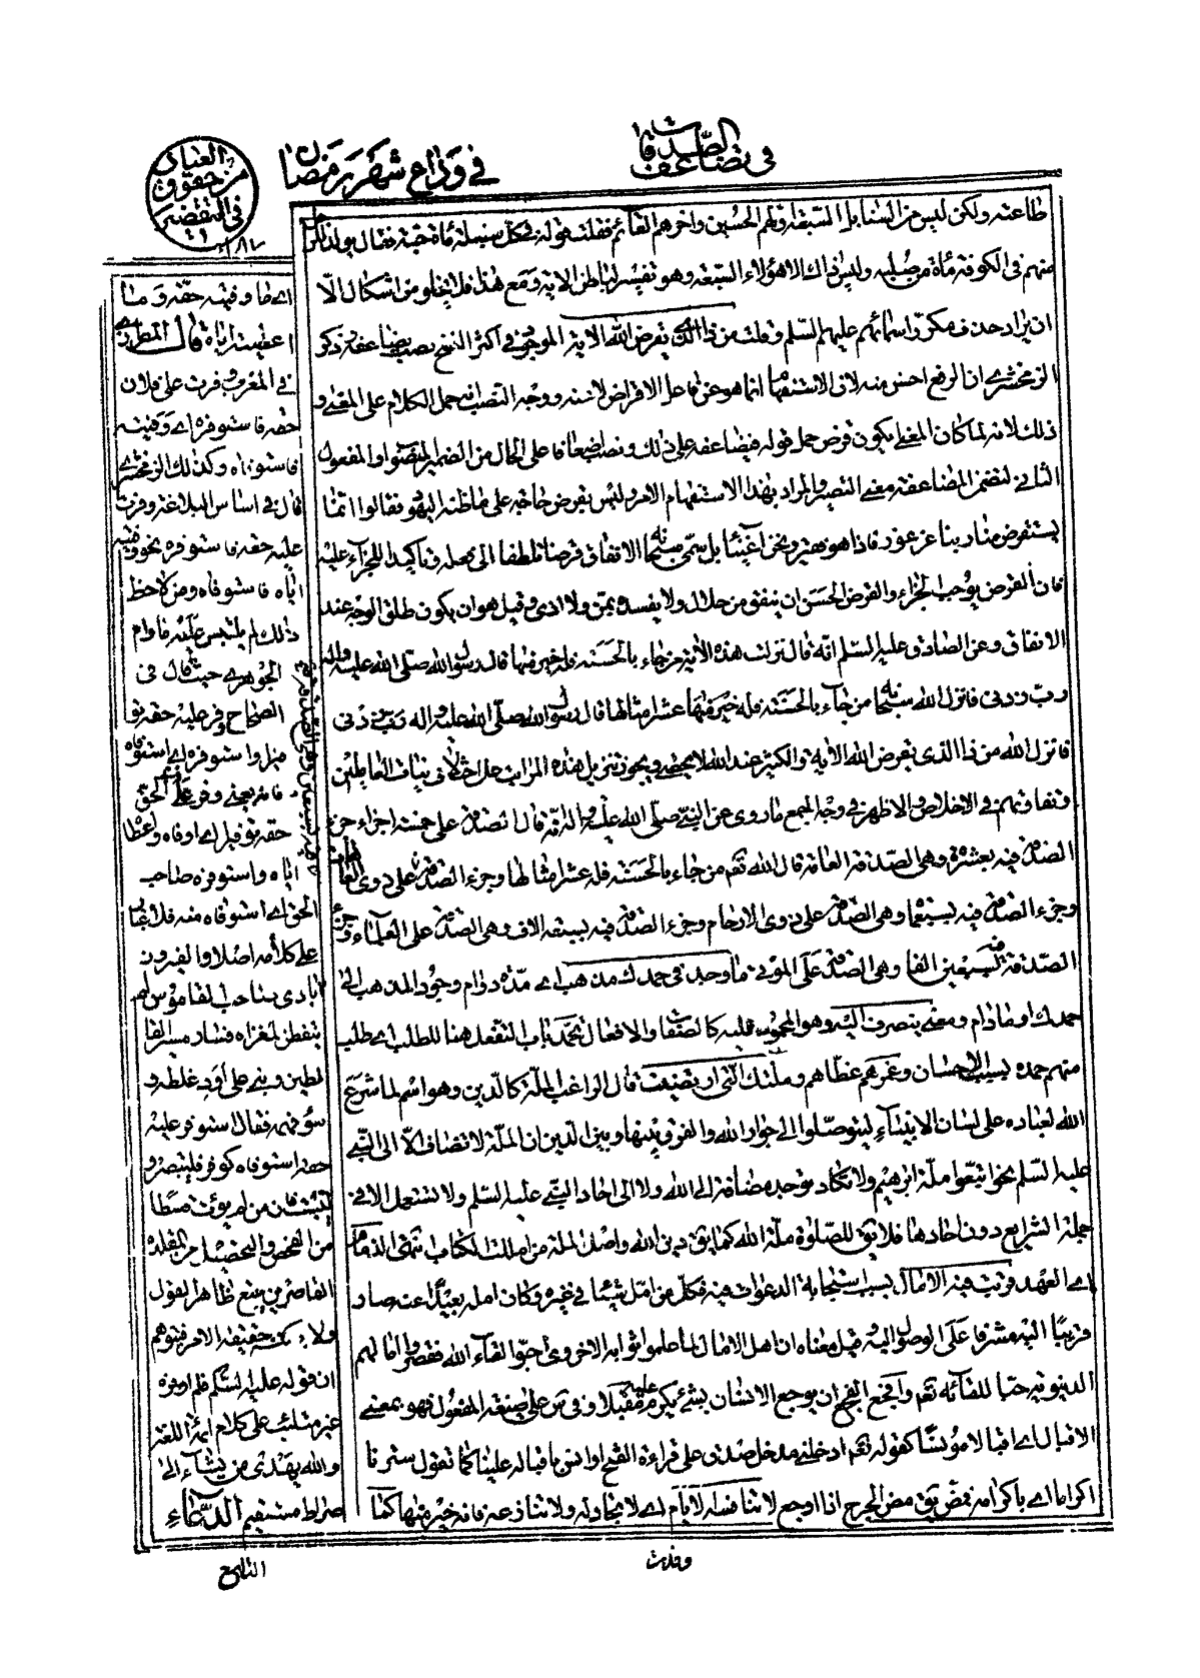 في مضاعفة الصدقات
في وداع شهر رمضان
في التقصير
من حقوق
طاعته ولكن ليس من السنابل السبعة ولهم الحسين واخرهم القائم فقلت قوله في كل سنبلة مأة حبة فقال يولد لكل رجل
منهم في الكوفة مأة من صلبه وليس ذاك الا هؤلاء السبعة وهو تفسير لباطن الاية ومع هذا فلا يخلو من اشكال الا
ان يراد حذف مكرر اسمائهم عليهم السلم وقلت من ذا الذي يقرض الله الاية الموجود في اكثر النسخ نصب يضاعفه وذكر
الزمخشري ان الرفع احسن منه لان الاستفهام انما هو عن فاعل الاقراض لا عنه ووجه النصب انه حمل الكلام على المعنى و
ذلك لانه لما كان المعنى يكون قرض حمل قوله فيضاعفه على ذلك ونصب اضعافا على الحال من الضمير المنصوب او المفعول
الثاني لتضمن المضاعفة معنى التصيير والمراد بهذا الاستفهام الامر وليس بقرض حاجة على ما ظنه اليهود فقالوا انما
يستقرض منا ربنا عن عوز فاذا هو فقير ونحن اغنياء بل سمى سبحانه الانفاق قرضا تلطفا الى فعله وتأكيدا للجزاء عليه
فان القرض يوجب الجزاء والقرض الحسن ان ينفق من حلال ولا يفسده بمن ولا اذى وقيل هو ان يكون طلق الوجه عند
الانفاق وعن الصادق عليه السلم انه قال نزلت هذه الاية من جاء بالحسنة فله خير منها قال رسول الله صلى الله عليه واله
رب زدني فانزل الله سبحانه من جاء بالحسنة فله عشر امثالها قال رسول الله صلى الله عليه واله رب زدني
فانزل الله من ذا الذي يقرض الله الاية والكثير عند الله لا يحصى ويجوز تنزيل هذه المراتب على اختلاف نيات العاملين
وتفاوتهم في الاخلاص والاظهر في وجه الجمع ما روي عن النبي صلى الله عليه واله انه قال الصدقة على خمسة اجزاء جزء
الصدقة فيه بعشرة وهي الصدقة العامة قال الله تعم من جاء بالحسنة فله عشر امثالها وجزء الصدقة على ذوي العاهات
وجزء الصدقة فيه بسبعمأة وهي الصدقة على ذوي الارحام وجزء الصدقة فيه بسبعة الاف وهي الصدقة على العلماء وجزء
الصدقة فيه بسبعين الفا وهي الصدقة على الموتى ما وجد في حمدك مذهب اي مدة دوام وجود المذهب الى
حمدك او مادام ومعنى ينصرف اليه وهو المحمود عليه كالصفات والافعال تحمد باب التفعل هنا للطلب اي طلب
منهم حمده بسبب الاحسان وغمرهم غطاهم وملتك التي ارتضيت قال الراغب الملة كالدين وهو اسم لما شرع
الله لعباده على لسان الانبياء ليتوصلوا الى جوار الله والفرق بينها وبين الدين ان الملة لا تضاف الا الى النبي
عليه السلم نحو اتبعوا ملة ابرهيم ولا تكاد توجد مضافة الى الله ولا الى احاد النبي عليه السلم ولا تستعمل الا في
جملة الشرايع دون احادها فلا يق للصلوة ملة الله كما يق دين الله واصل الملة من امللت الكتاب
اي العهد قربت فيه الامال بسبب استجابة الدعوات فيه فكل من امل شيئا في غيره وكان امله بعيدا عنه صار
قريبا اليه مشرفا على الوصول اليه وقيل معناه ان اهل الامال لما علموا ثوابه الاخروي احبوا لقاء الله فقصروا امالهم
الدنيوية حبا للقائه تعم والفجع ان يوجع الانسان بشئ يكرم عليه مقبلا وفي س على صيغة المفعول فهو بمعنى
الاقبال اي اقبالا مؤنسا كقوله تعم ادخلني مدخل صدق على قراءة الفتح او انس باقباله علينا كما تقول ستر فا
اكراما اي باكرامه فمض يق مض الجرح اذا اوجع لا تنافسه الايام اي لا تحاوله ولا تنازعه فانه خير منها كما
وفدت
اي ما وفيته حقه وما
اعطيته اياه قال المطرزي
في المغرب وفرت على فلان
حقه فاستوفره اي وفيته
فاستوفاه وكذلك الزمخشري
قال في اساس البلاغة وفرت
عليه حقه فاستوفره نحو وفيته
اياه فاستوفاه ومن لاحظ
ذلك لم يلتبس عليه ما رام
الجوهري حيث قال في
الصحاح وفر عليه حقه توفيرا
واستوفره اي استوفاه
فانه يعني وفر على الحق
حقه توفيرا اي اوفاه واعطاه
اياه واستوفره صاحب
الحق اي استوفاه منه فلا غبار
على كلامه اصلا والفيروز
ابادي صاحب القاموس لم
يتفطن لمغزاه فسار مسير الغا
لطين وبنى على اود غلطه و
سوء فهمه فقال استوفر عليه
حقه استوفاه كوفر فليتبصر و
ليتثبت فان من لم يؤت قسطا
من الفحص والتحصيل من المقلدة
القاصرين يتبع ظاهر القول
ولا يدرك حقيقة الامر فيتوهم
ان قوله عليه السلم فلم اوفره
غير متلئب على كلام ائمة اللغة
والله يهدي من يشاء الى
صراط مستقيم الدعاء
التاسع